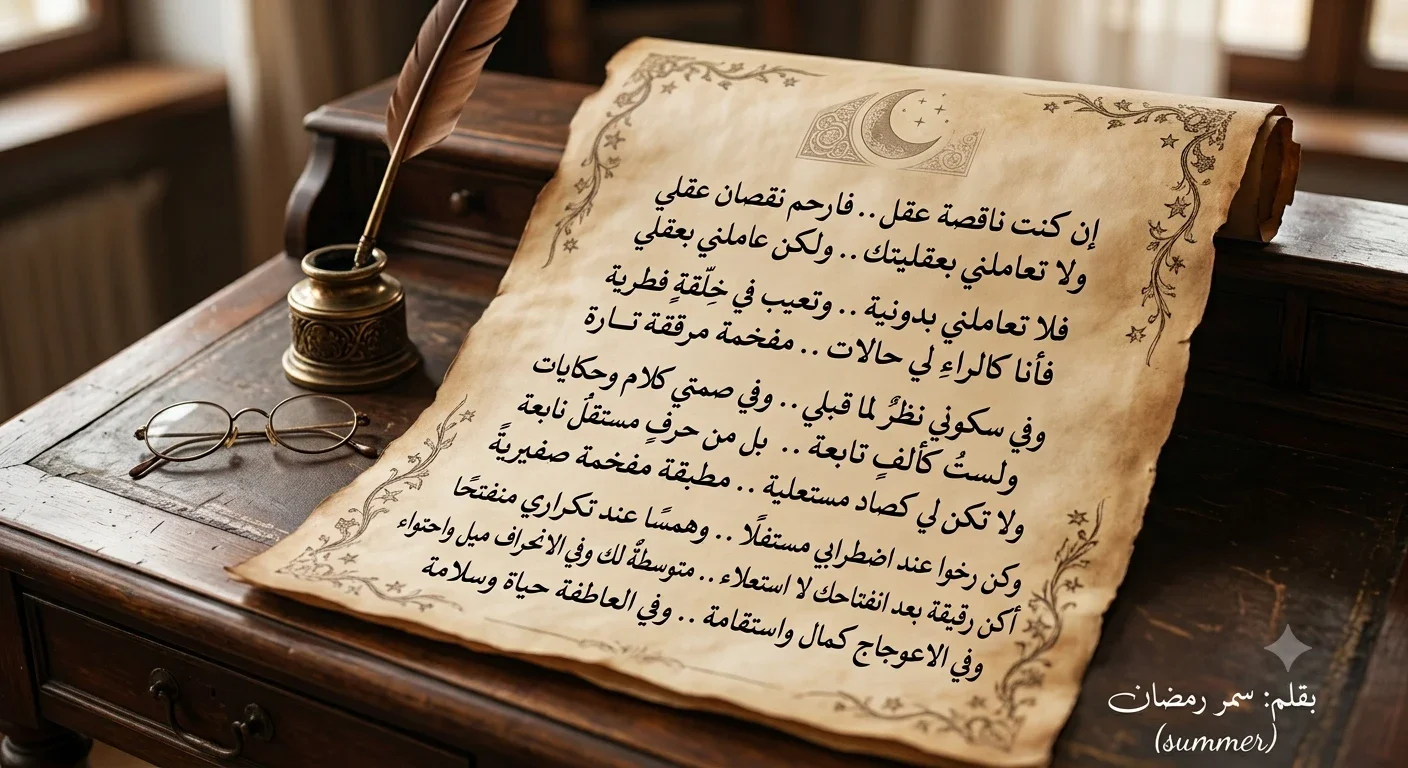 إن كنت ناقصة عقل .. فارحم نقصان عقلي
ولا تعاملني بعقليتك .. ولكن عاملني بعقلي
فلا تعاملني بدونية .. وتعيب في خِلّقةٍ فطرية
فأنا كالراءِ لي حالات .. مفخمة مرققة تــارة
وفي سكوني نظرٌ لما قبلي .. وفي صمتي كلام وحكايات
ولستُ كألفٍ تابعة .. بل من حرفٍ مستقلٌ نابعة
ولا تكن لي كصاد مستعلية .. مطبقة مفخمة صفيريةً
وكن رخوا عند اضطرابي مستفلًا .. وهمسًا عند تكراري منفتحًا
أكن رقيقة بعد انفتاحك لا استعلاء .. متوسطةٌ لك وفي الانحراف ميل واحتواء
وفي الاعوجاج كمال واستقامة .. وفي العاطفة حياة وسلامة
بقلم: سمر رمضان
(summer)